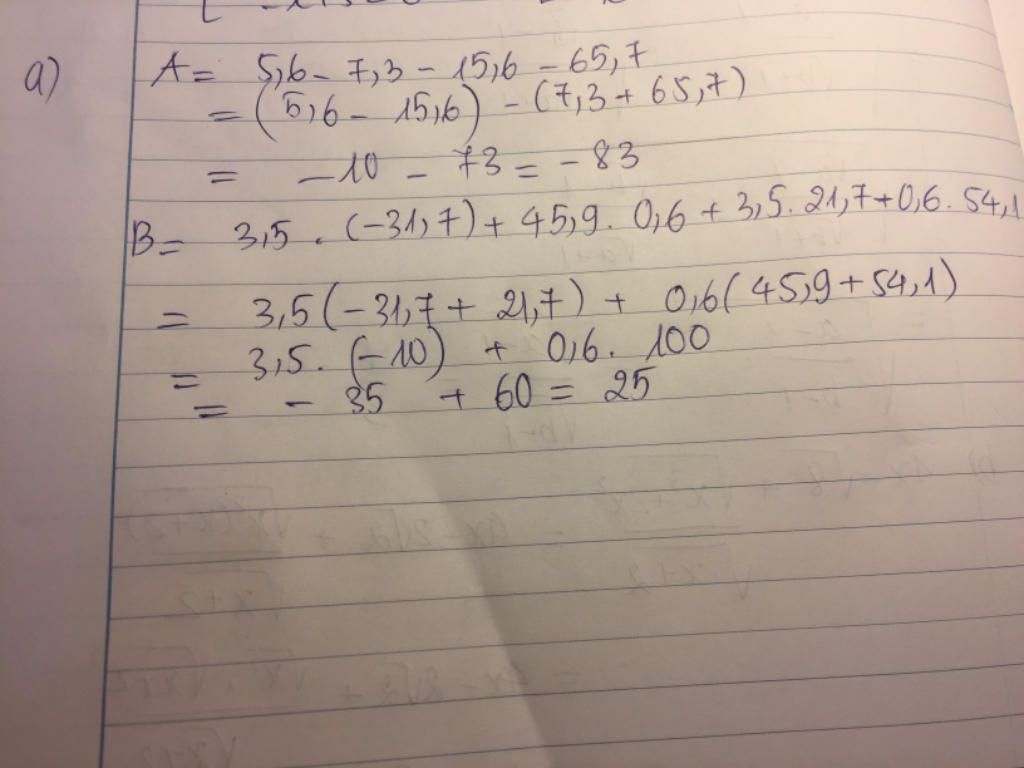 a) A = 5,6 - 7,3 - 15,6 - 65,7
= (5,6 - 15,6) - (7,3 + 65,7)
= -10 - 73 = -83
B = 3,5 . (-31,7) + 45,9 . 0,6 + 3,5 . 21,7 + 0,6 . 54,1
= 3,5 (-31,7 + 21,7) + 0,6 (45,9 + 54,1)
= 3,5 . (-10) + 0,6 . 100
= - 35 + 60 = 25